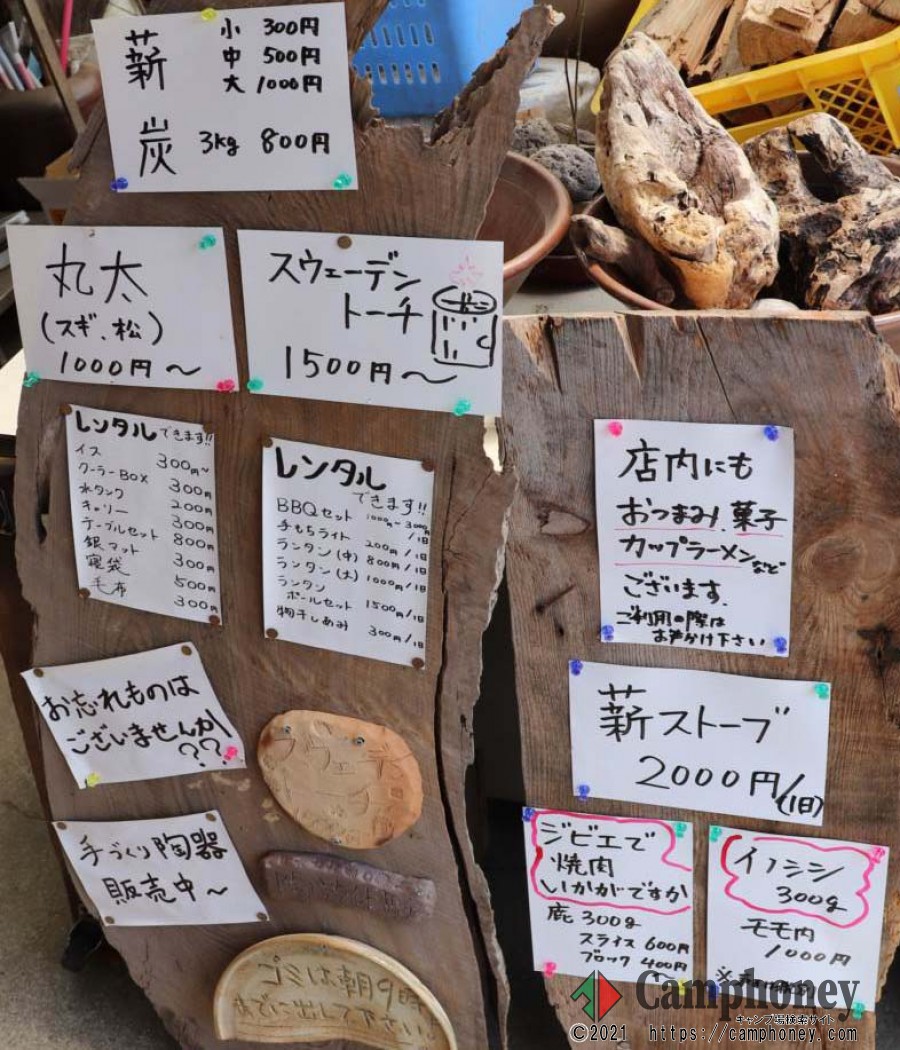 薪 小 300円
中 500円
大 1000円
炭 3kg 800円
丸太
(スギ、松)
1000円〜
スウェーデン
トーチ
1500円〜
レンタルできます!!
イス 300円〜
クーラーBOX 300円
水タンク 200円
キャリー 300円
テーブルセット 800円
銀マット 300円
寝袋 500円
毛布 300円
レンタル
できます!!
BBQセット 1000円-3000円/1日
手もちライト 200円/1日
ランタン(中) 800円/1日
ランタン(大) 1000円/1日
ランタン
ポールセット 1500円/1日
物干しあみ 300円/1日
お忘れものは
ございませんか
??
手づくり陶器
販売中〜
店内にも
おつまみ、菓子
カップラーメンなど
ございます.
ご利用の際は
お声がけ下さい
薪ストーブ
2000円/(1日)
ジビエで
焼肉
いかがですか
鹿 300g
スライス 600円
ブロック 400円
イノシシ
300g
モモ肉
1000円
Camphoney
キャンプ場検索サイト
©2021 https://camphoney.com